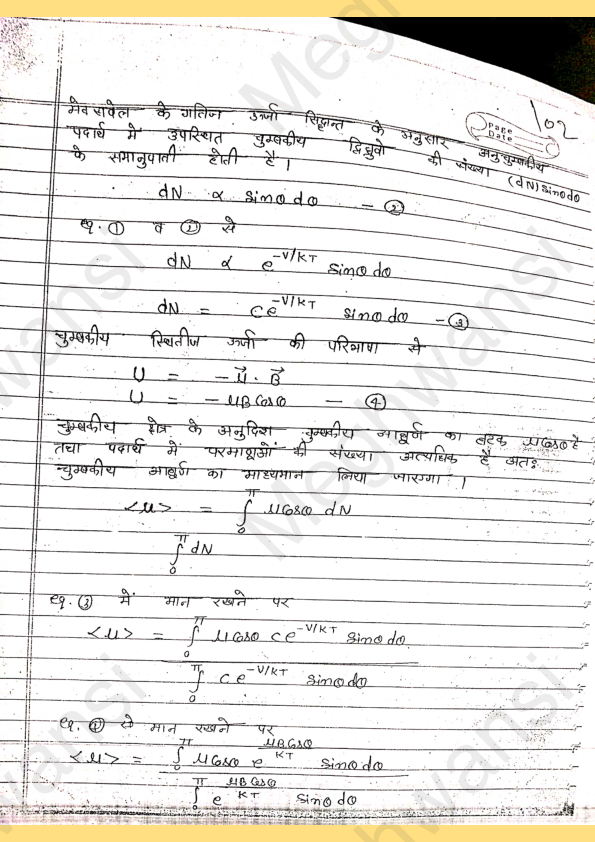 Page
Date
102
मेक्सवेल के गतिज उर्जा सिद्धान्त के अनुसार अनुचुम्बकीय
पदार्थ में उपस्थित चुम्बकीय द्विध्रुवो की संख्या (dN) sinθdθ
के समानुपाती होती है।
dN α sinθdθ — ②
eq. ① व ② से
dN α e^{-V/KT} sinθdθ
dN = Ce^{-V/KT} sinθdθ — ③
चुम्बकीय स्थितीज ऊर्जा की परिभाषा से
U = -μ⃗·B⃗
U = -μBCosθ — ④
चुम्बकीय क्षेत्र के अनुदिश चुम्बकीय आघूर्ण का घटक μCosθ है
तथा पदार्थ में परमाणुओं की संख्या अत्यधिक है अतः
चुम्बकीय आघूर्ण का माध्यमान लिया जाएगा।
<μ> = ∫₀^π μCosθ dN
∫₀^π dN
eq. ③ में मान रखने पर
<μ> = ∫₀^π μCosθ Ce^{-V/KT} sinθdθ
∫₀^π Ce^{-V/KT} sinθdθ
eq. ④ से मान रखने पर
<μ> = ∫₀^π μCosθ e^{μBCosθ/KT} sinθdθ
∫₀^π e^{μBCosθ/KT} sinθdθ
Meghwansi